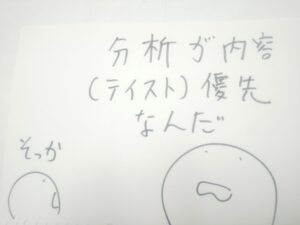 分析が内容
(テイスト)優先
なんだ
そっか